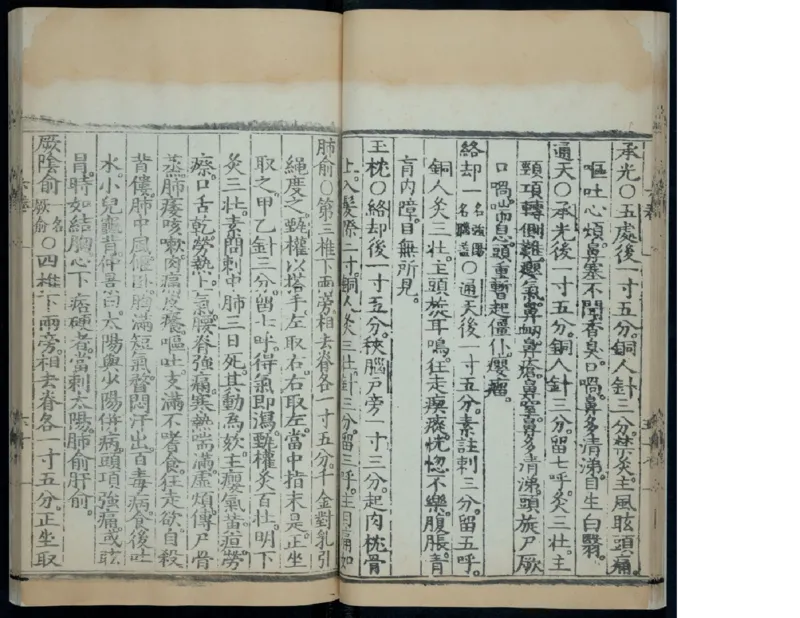 承光○五處後一寸五分。銅人針三分。禁灸。主風眩頭痛。
嘔吐心煩。鼻塞不聞香臭。口喎。鼻多清涕。目生白翳。
通天○承光後一寸五分。銅人針三分。留七呼。灸三壯。主
頸項轉側難。癭氣。鼻衄。鼻瘡。鼻窒。鼻多清涕。頭旋。尸厥
口喎。喘息。頭重。暫起僵仆。癭瘤。
絡却一名強陽一名腦蓋○通天後一寸五分。素註刺三分。留五呼。
銅人灸三壯。主頭旋耳鳴。狂走瘈瘲。恍惚不樂。腹脹。青
盲内障。目無所見。
玉枕○絡却後一寸五分。挾腦戶旁一寸三分。起肉枕骨
上。入髮際二寸。銅人灸三壯。針三分。留三呼。主目痛如
肺俞○第三椎下兩旁。相去脊各一寸五分。千金對乳引
繩度之。甄權以搭手。左取右。右取左。當中指末是。正坐
取之。甲乙針三分。留七呼。得氣即瀉。甄權灸百壯。明下
灸三壯。素問刺中肺三日死。其動為欬。主癭氣。黃疸。勞
瘵。口舌乾。勞熱上氣。腰脊強痛。寒熱喘滿。虛煩。傳尸骨
蒸。肺痿咳嗽。肉痛皮癢。嘔吐。支滿不嗜食。狂走欲自殺
背僂。肺中風。偃臥。胸滿短氣。瞀悶汗出。百毒病。食後吐
水。小兒龜背。仲景曰。太陽與少陽併病。頭項強痛。或眩
冒。時如結胸。心下痞硬者。當刺太陽肺俞肝俞。
厥陰俞一名厥俞○四椎下兩旁。相去脊各一寸五分。正坐取